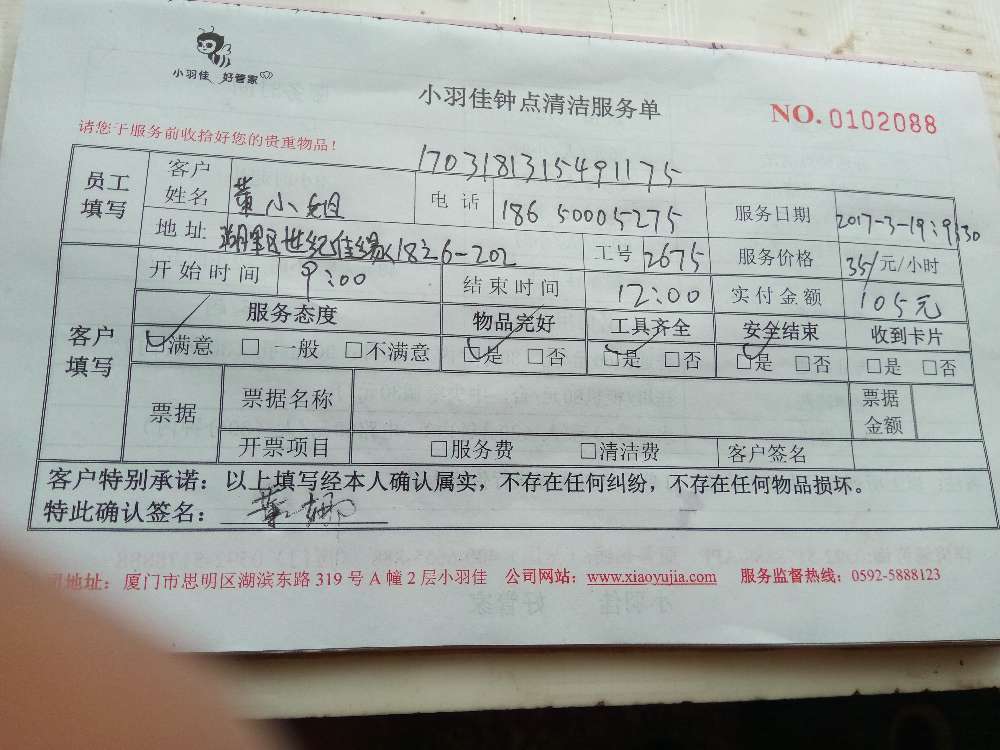 小羽佳 好管家
小羽佳钟点清洁服务单
NO.0102088
请您于服务前收拾好您的贵重物品！
1703181315491175
员工填写 客户姓名 黄小姐 电话 18650005275 服务日期 2017-3-19:9:30
地址 湖里区世纪佳缘1826-202 工号 2675 服务价格 35/元/小时
客户填写 开始时间 9:00 结束时间 12:00 实付金额 105元
服务态度 物品完好 工具齐全 安全结束 收到卡片
☑满意 □一般 □不满意 ☑是 □否 ☑是 □否 ☑是 □否 □是 □否
票据 票据名称 票据金额
开票项目 □服务费 □清洁费 客户签名
客户特别承诺：以上填写经本人确认属实，不存在任何纠纷，不存在任何物品损坏。
特此确认签名：
司地址：厦门市思明区湖滨东路319号A幢2层小羽佳 公司网站：www.xiaoyujia.com 服务监督热线：0592-5888123